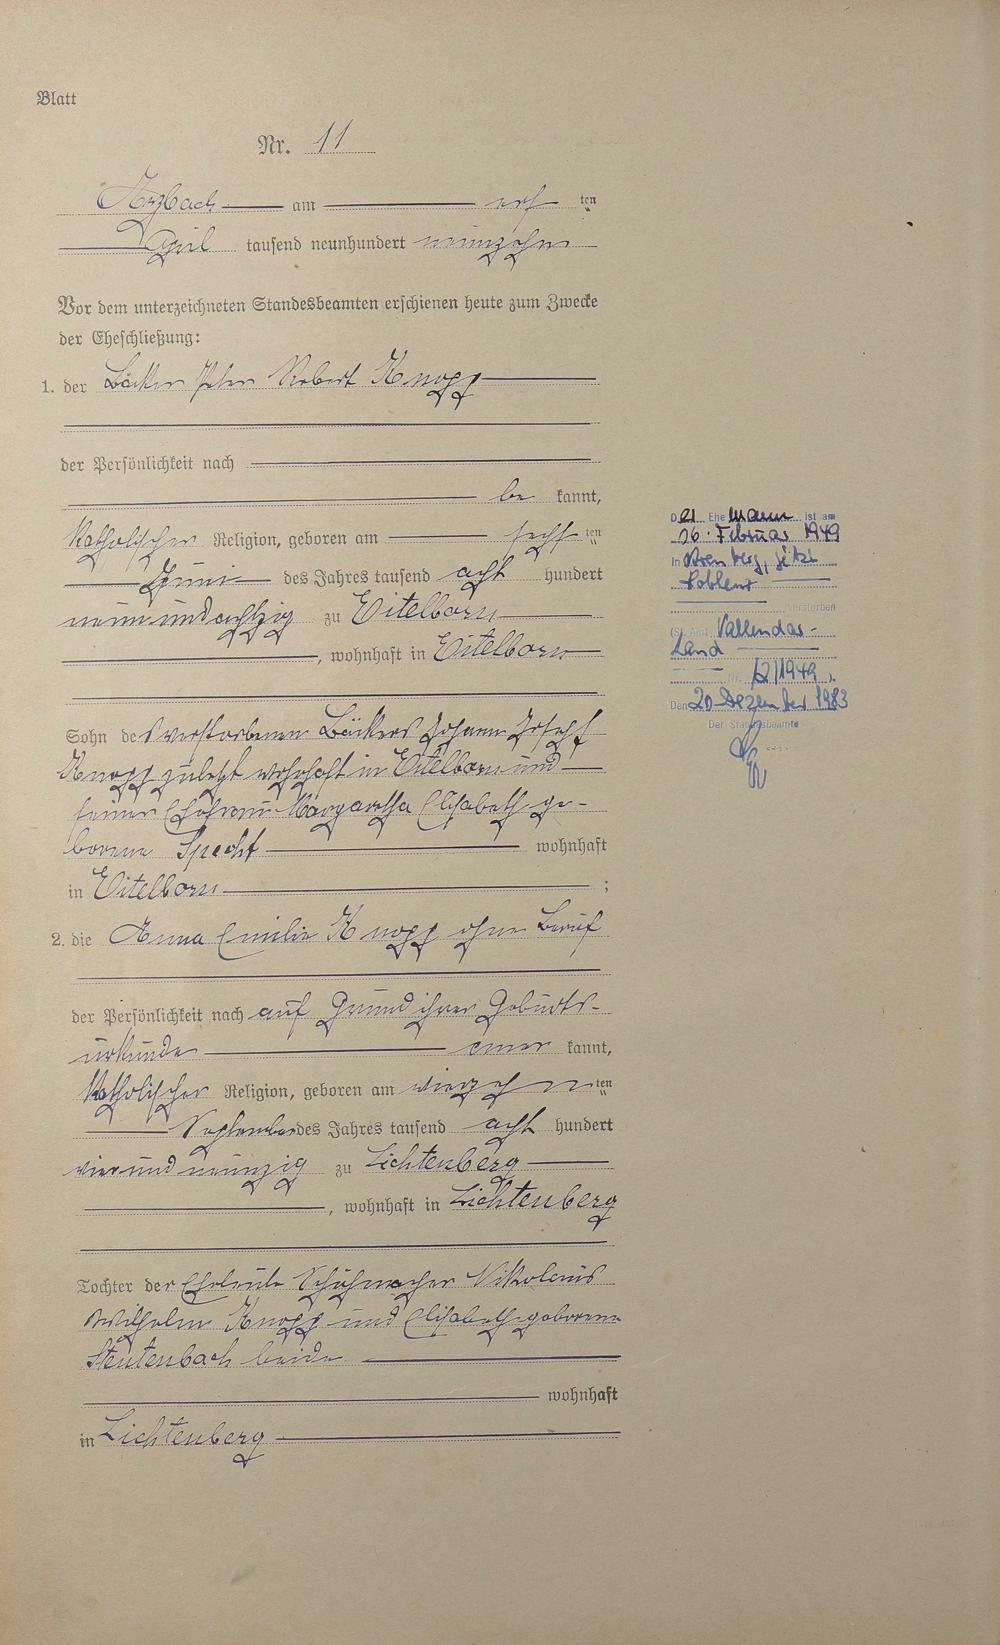 Blatt
Nr. 11
Arzbach am ten
April tausend neunhundert neunzehn
Vor dem unterzeichneten Standesbeamten erschienen heute zum Zwecke
der Eheschließung:
1. der Bäcker Peter Robert Knopp
der Persönlichkeit nach
be kannt,
katholischer Religion, geboren am sechs ten
Juni des Jahres tausend acht hundert
neunundachtzig zu Eitelborn
, wohnhaft in Eitelborn
Sohn des verstorbenen Bäckers Johann Josef
Knopp zuletzt wohnhaft in Eitelborn und
seiner Ehefrau Margaretha Elisabeth ge-
borene Specht wohnhaft
in Eitelborn ;
2. die Anna Emilie Knopp ohne Beruf
der Persönlichkeit nach auf Grund ihrer Geburts-
urkunde aner kannt,
katholischer Religion, geboren am vierzehnten
September des Jahres tausend acht hundert
vierundneunzig zu Lichtenberg
, wohnhaft in Lichtenberg
Tochter der Eheleute Schuhmacher Nikolaus
Wilhelm Knopp und Elisabeth geborene
beide
wohnhaft
in Lichtenberg
Der Ehemann ist am
16. Februar 1949
in Arenberg, jetzt
Koblenz
verstorben
(St. Amt Vallendar-
Land
Nr. 12/1949 ).
Den 20. Dezember 1983
Der Standesbeamte